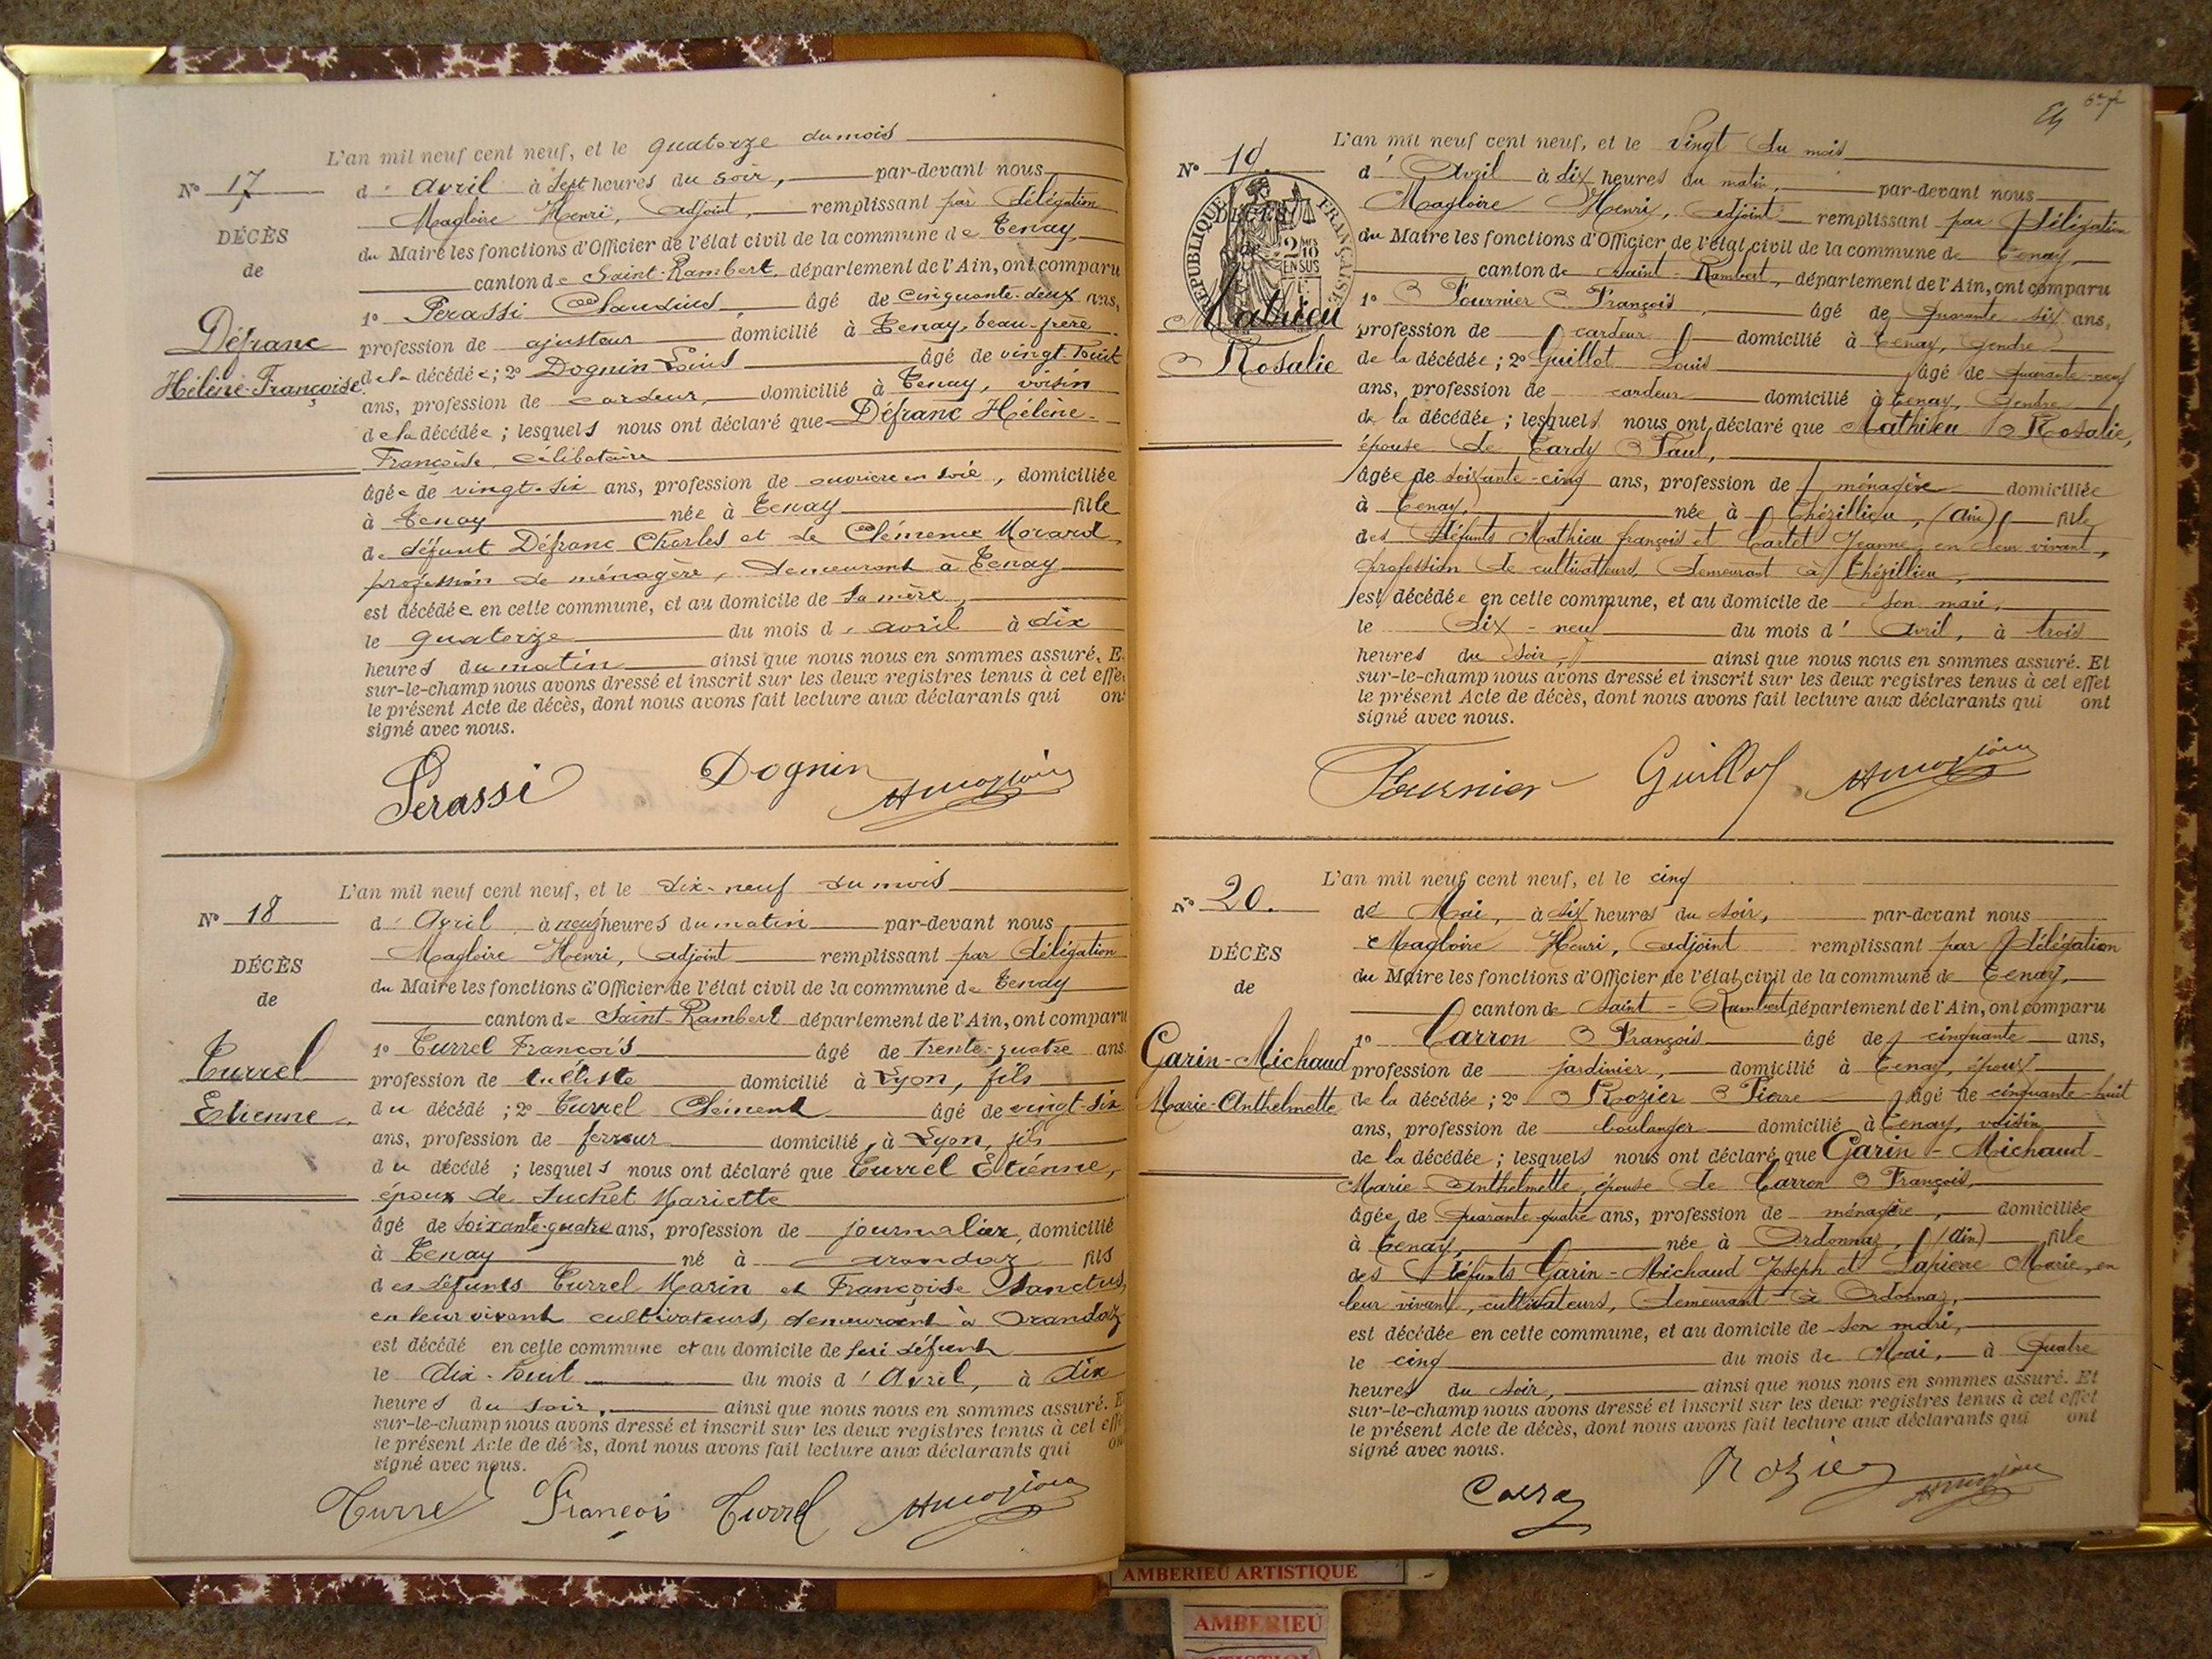 L'an mil neuf cent neuf, et le quatorze du mois
N° 17
d'avril à sept heures du soir, par-devant nous
Magloire Henri, adjoint, remplissant par délégation
DÉCÈS
du Maire les fonctions d'Officier de l'état civil de la commune de Tenay,
de
canton de Saint-Rambert, département de l'Ain, ont comparu
1° Perassi Claudius, âgé de cinquante-deux ans,
Défranc
profession de ajusteur domicilié à Tenay, beau-frère
Hélène-Françoise
de la décédée; 2° Dognin Louis âgé de vingt-huit
ans, profession de cardeur, domicilié à Tenay, voisin
de la décédée; lesquels nous ont déclaré que Défranc Hélène-
Françoise, célibataire
âgée de vingt-six ans, profession de ouvrière en soie, domiciliée
à Tenay née à Tenay fille
de défunt Défranc Charles et de Clémence Morard,
profession de ménagère, demeurant à Tenay
est décédée en cette commune, et au domicile de sa mère,
le quatorze du mois d'avril à dix
heures du matin ainsi que nous nous en sommes assuré. E
sur-le-champ nous avons dressé et inscrit sur les deux registres tenus à cet effe
le présent Acte de décès, dont nous avons fait lecture aux déclarants qui on
signé avec nous.
Perassi Dognin
L'an mil neuf cent neuf, et le dix-neuf du mois
N° 18
d'Avril, à neuf heures du matin par-devant nous
Magloire Henri, adjoint remplissant par délégation
DÉCÈS
du Maire les fonctions d'Officier de l'état civil de la commune de Tenay
de
canton de Saint-Rambert département de l'Ain, ont comparu
1° Currel François âgé de trente-quatre ans
Currel
profession de tulliste domicilié à Lyon, fils
Etienne
du décédé; 2° Currel Clément âgé de vingt-six
ans, profession de ferreur domicilié à Lyon, fils
du décédé; lesquels nous ont déclaré que Currel Etienne,
époux de Suchet Mariette
âgé de soixante-quatre ans, profession de journalier, domicilié
à Tenay né à arandaz fils
des défunts Currel Marin et Françoise Sanctus,
en leur vivant cultivateurs, demeurant à Arandaz
est décédé en cette commune et au domicile de lui défunt
le dix-huit du mois d'Avril, à dix
heures du soir, ainsi que nous nous en sommes assuré. E
sur-le-champ nous avons dressé et inscrit sur les deux registres tenus à cet effe
le présent Acte de décès, dont nous avons fait lecture aux déclarants qui on
signé avec nous.
Curre François Currel
L'an mil neuf cent neuf, et le vingt du mois
N° 19.
d'Avril à dix heures du matin, par-devant nous
Magloire Henri, adjoint remplissant par délégation
DÉCÈS
RÉPUBLIQUE FRANÇAISE
du Maire les fonctions d'Officier de l'état civil de la commune de Tenay,
de
canton de Saint-Rambert, département de l'Ain, ont comparu
1° Fournier François, âgé de quarante six ans,
Mathieu
profession de cardeur domicilié à Tenay, gendre
Rosalie
de la décédée; 2° Guillot Louis âgé de quarante-neuf
ans, profession de cardeur domicilié à Tenay, gendre
de la décédée; lesquels nous ont déclaré que Mathieu Rosalie,
épouse de Tardy Paul,
âgée de soixante-cinq ans, profession de ménagère domiciliée
à Tenay, née à Thézillieu, (Ain) fille
des défunts Mathieu françois et Cartet Jeanne, en leur vivant,
profession de cultivateurs, demeurant à Thézillieu,
est décédée en cette commune, et au domicile de son mari,
le dix-neuf du mois d'Avril, à trois
heures du soir, ainsi que nous nous en sommes assuré. Et
sur-le-champ nous avons dressé et inscrit sur les deux registres tenus à cet effet
le présent Acte de décès, dont nous avons fait lecture aux déclarants qui ont
signé avec nous.
Fournier Guillot
L'an mil neuf cent neuf, et le cinq
N° 20.
de Mai, à six heures du soir, par-devant nous
Magloire Henri, adjoint remplissant par délégation
DÉCÈS
du Maire les fonctions d'Officier de l'état civil de la commune de Tenay,
de
canton de Saint-Rambert département de l'Ain, ont comparu
1° Carron François âgé de cinquante ans,
Garin-Michaud
profession de jardinier, domicilié à Tenay, époux
Marie-Anthelmette
de la décédée; 2° Rozier Pierre âgé de cinquante-huit
ans, profession de boulanger domicilié à Tenay, voisin
de la décédée; lesquels nous ont déclaré que Garin-Michaud-
Marie-Anthelmette, épouse de Carron François,
âgée de quarante-quatre ans, profession de ménagère, domiciliée
à Tenay, née à Ordonnaz, (Ain) fille
des défunts Garin-Michaud Joseph et Lapierre Marie, en
leur vivant, cultivateurs, demeurant à Ordonnaz,
est décédée en cette commune, et au domicile de son mari,
le cinq du mois de Mai, à quatre
heures du soir, ainsi que nous nous en sommes assuré. Et
sur-le-champ nous avons dressé et inscrit sur les deux registres tenus à cet effet
le présent Acte de décès, dont nous avons fait lecture aux déclarants qui ont
signé avec nous.
Rozier
AMBERIEU ARTISTIQUE
AMBERIEU